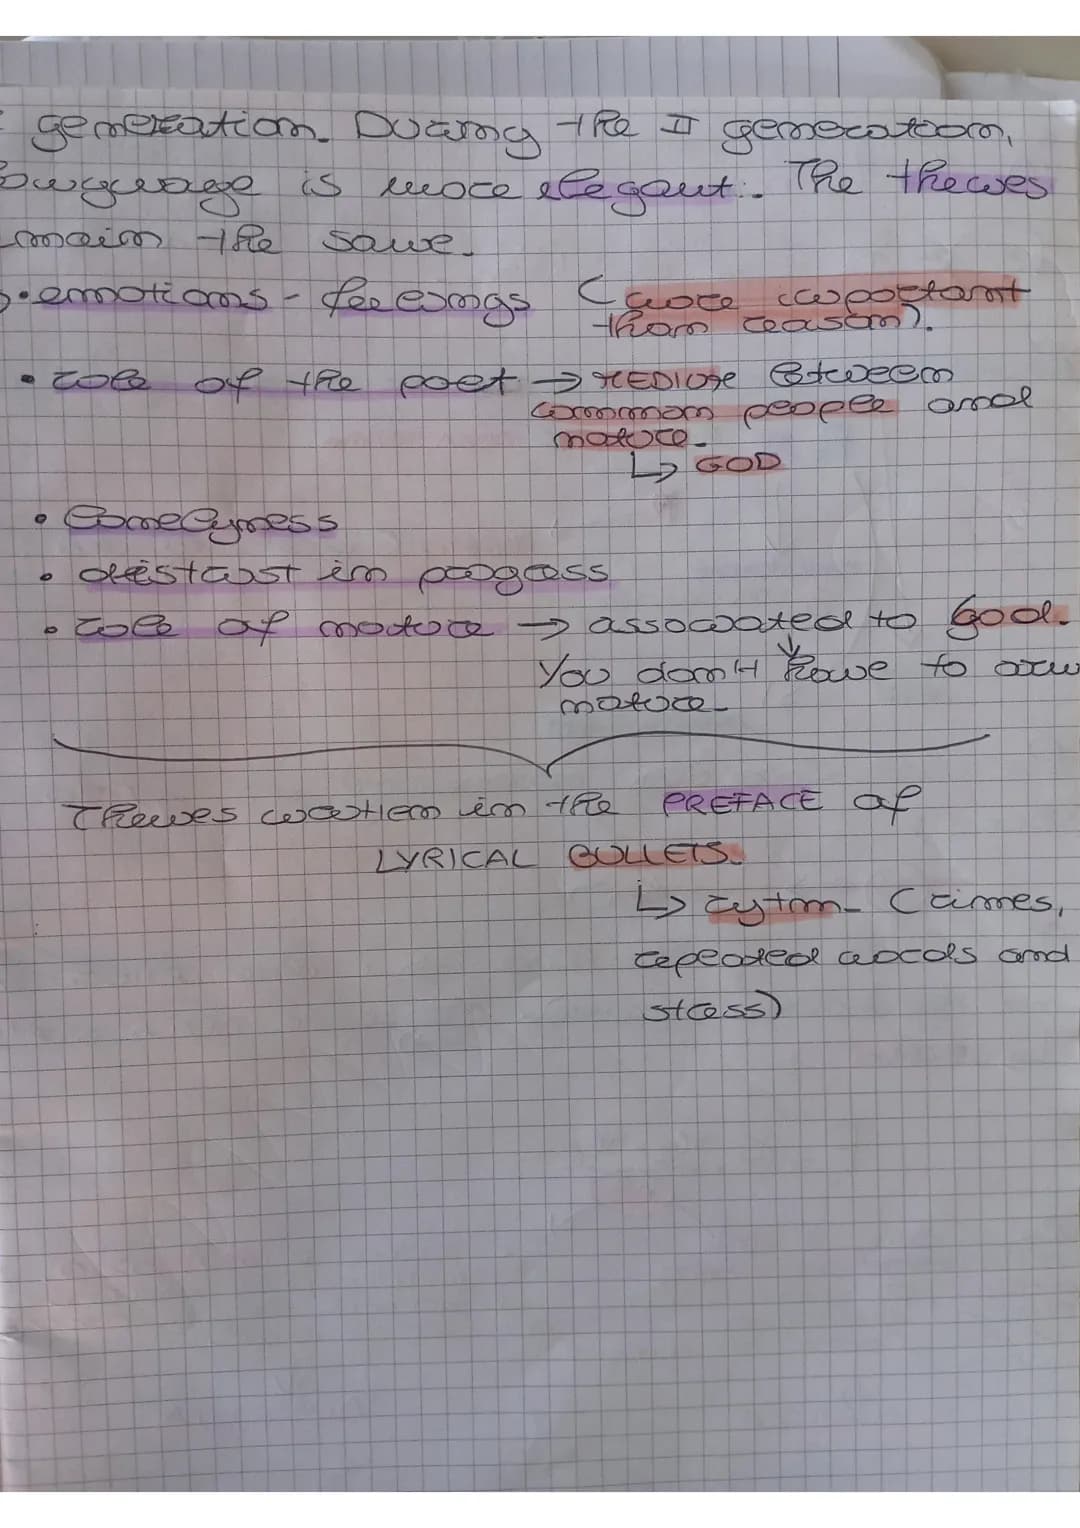 generation. During the II generation,
language is more elegant. The themes
main the same.
• emotions - feelings (more important
than reason).
• role of the poet → MEDIATE Between
common people and
nature.
↳ GOD
• Lonelyness
• distrust in progress
• role of nature → associated to God.
↓
You don't have to
nature.
Themes written in the PREFACE of
LYRICAL BULLETS.
↳ rytm. (rimes,
repeated words and
stress)